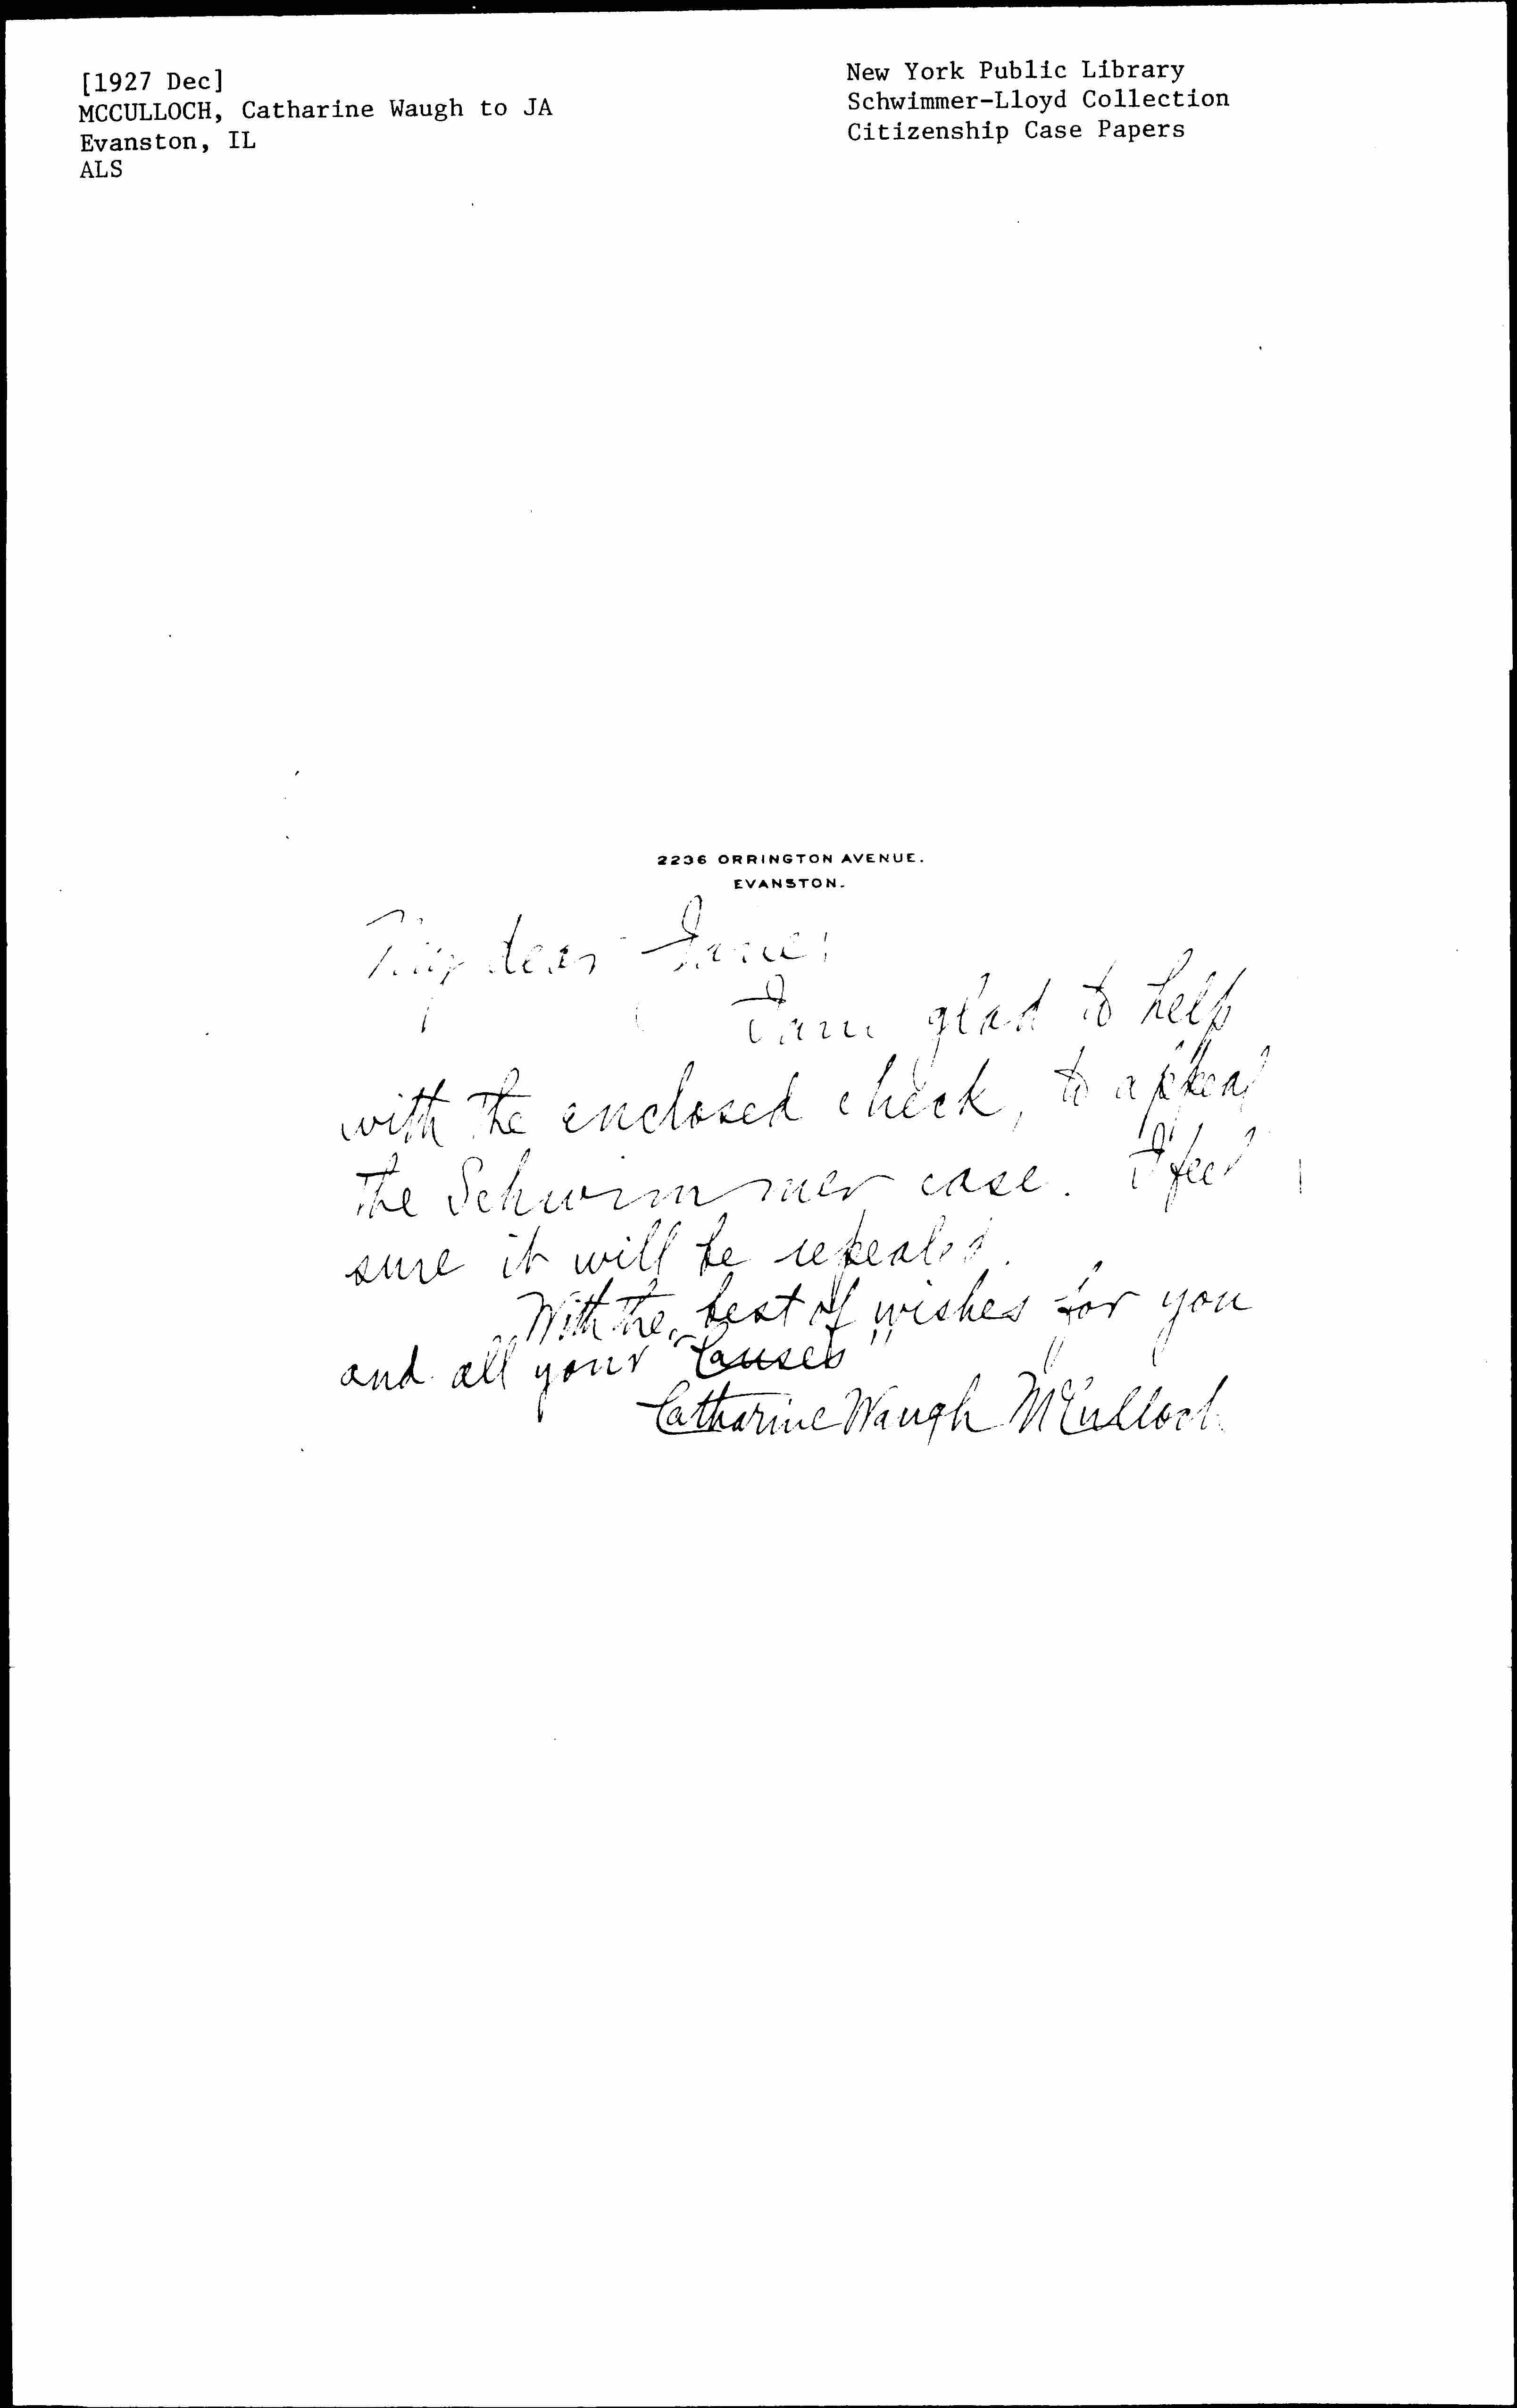 [1927 Dec]
MCCULLOCH, Catharine Waugh to JA
Evanston, IL
ALS
New York Public Library
Schwimmer-Lloyd Collection
Citizenship Case Papers
2236 ORRINGTON AVENUE.
EVANSTON.
My dear Jane:
I am glad to help
with the enclosed check, to appeal
the Schwimmer case. I feel
sure it will be repealed.
With the best of wishes for you
and all your "Causes"
Catharine Waugh McCulloch